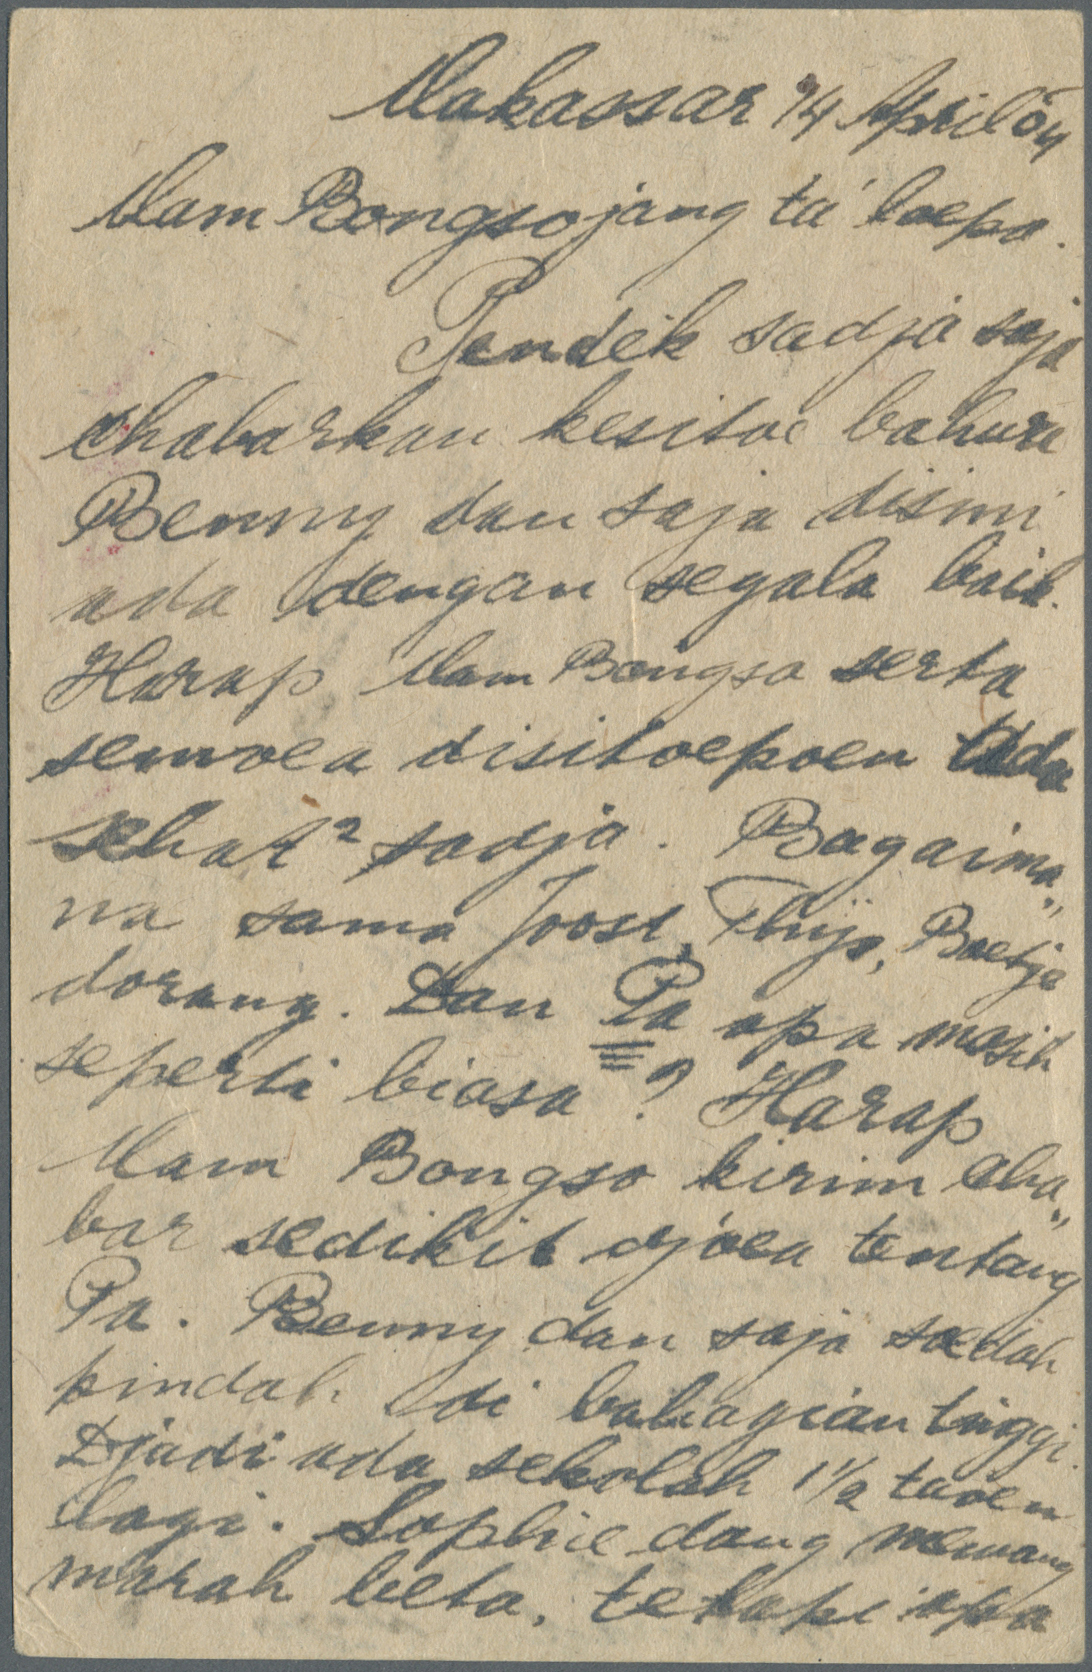 Makassar 14 April 04
Mam Bongso jang ta' loepa.
Pendek sadja saja
chabarkan kesitoe bahwa
Benny dan saja disini
ada dengan segala baik.
Harap Mam Bongso serta
semoea disitoepoen ada
sehat² sadja. Bagaima„
na sama Joost, Thijs, Boetje
dorang. Dan Pa apa masih
seperti biasa? Harap
Mam Bongso kirim cha„
bar sedikit djoea tentang
Pa. Benny dan saja soedah
pindah di bahagian tinggi.
Djadi ada sekolah 1½ taoen
lagi. Sophie dang memang
marah beta, tetapi apa